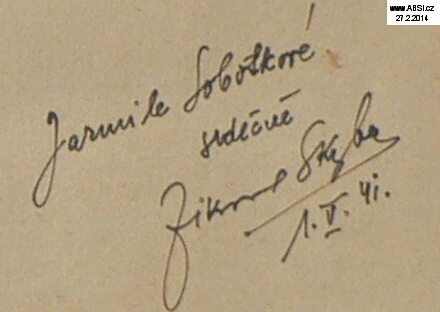 www.ABSI.cz
27.2.2014
Jarmile Sobotkové
srdečně
Zikmund Skyba
1. V. 41.